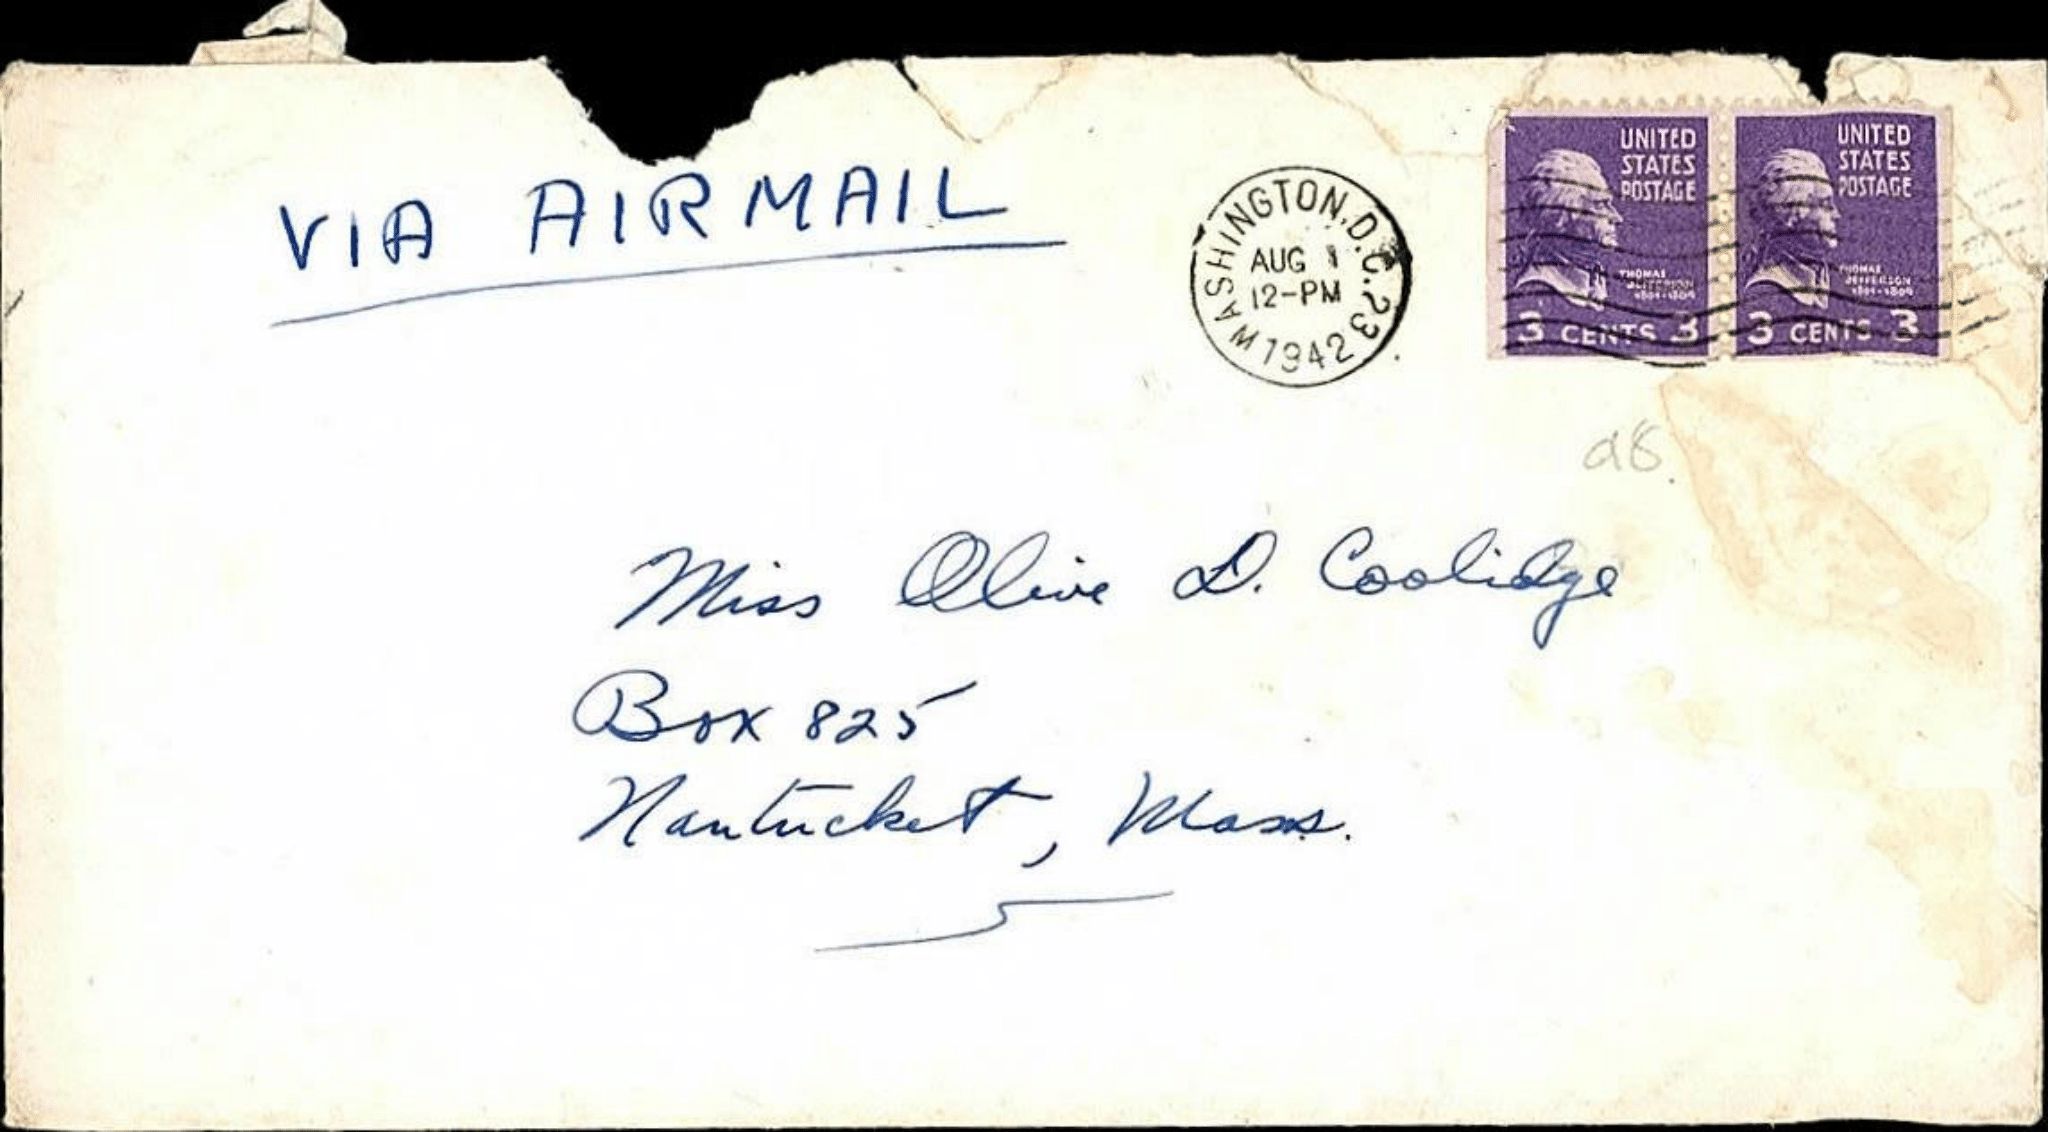 VIA AIRMAIL
WASHINGTON, D.C. 23
AUG 1
12-PM
1942
UNITED
STATES
POSTAGE
THOMAS
JEFFERSON
1801-1809
3 CENTS 3
UNITED
STATES
POSTAGE
THOMAS
JEFFERSON
1801-1809
3 CENTS 3
Miss Olive D. Coolidge
Box 825
Nantucket, Mass.